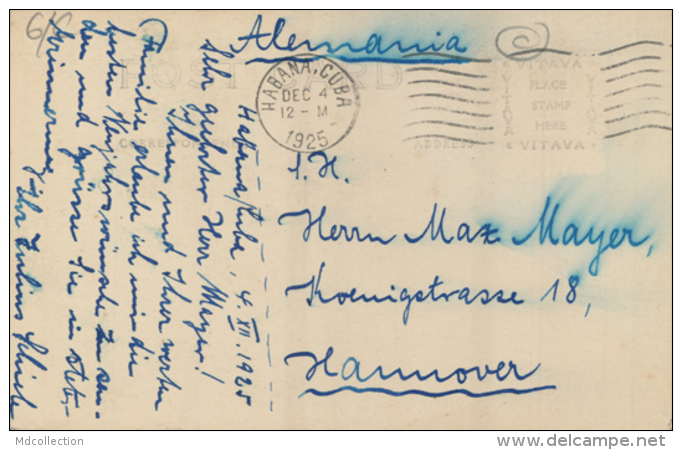 6/6
Alemania
POST CARD
HABANA, CUBA
DEC 4
12 - M
1925
VITAVA
PLACE
STAMP
HERE
VITAVA
CORRESPONDENCE
ADDRESS
S. H.
Herrn Max Mayer,
Koenigstrasse 18,
Hannover
Habana/Cuba, 4. XII. 1925
Sehr geehrter Herr Mayer!
Ihnen und Ihrer werten
Familie erlaube ich mir die
besten Neujahrswünsche zu sen-
den und grüsse Sie in steter
Erinnerung Ihr Julius
Mdcollection
delcampe.net